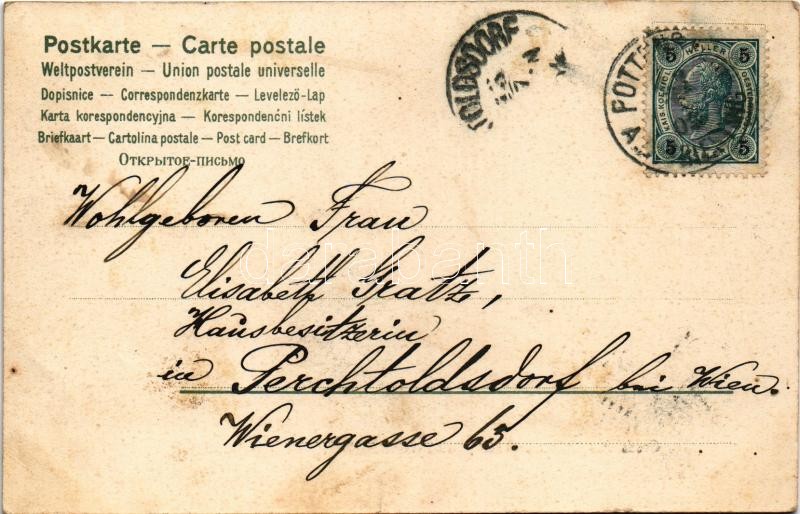 Postkarte — Carte postale
Weltpostverein — Union postale universelle
Dopisnice — Correspondenzkarte — Levelező-Lap
Karta korespondencyjna — Korespondenćni lístek
Briefkaart — Cartolina postale — Post card — Brefkort
Открытое-письмо
TOLDSDORF
POTT
5 HELLER 5
KAIS. KOENIGL.
5 5
Wohlgeboren Frau
databanth
Elisabeth Gratz,
Hausbesitzerin
in Perchtoldsdorf bei Wien.
Wienergasse 65.